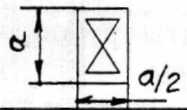 a
a/2